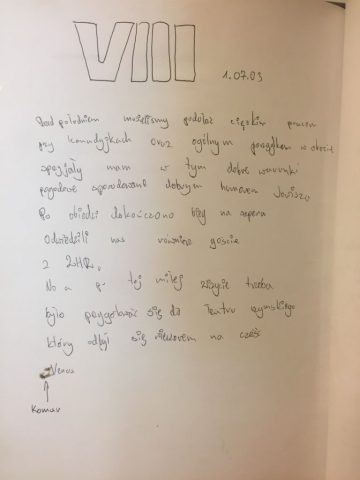 VIII
1.07.03
Pod południem musieliśmy podołać ciężkim pracom
przy komandyżkach oraz ogólnym porządkom w obozie
spezjały mam w tym dobre warunki
pogodowe spowodowane dobrym humorem Jowisza
Po obiedzie dokończono biby na
Odwiedzili nas również goście
z ZHR,
No a po tej miłej wizycie trzeba
było przygotować się do Teatru rzymskiego
który odbył się wieczorem na cześć
Venus
Komar